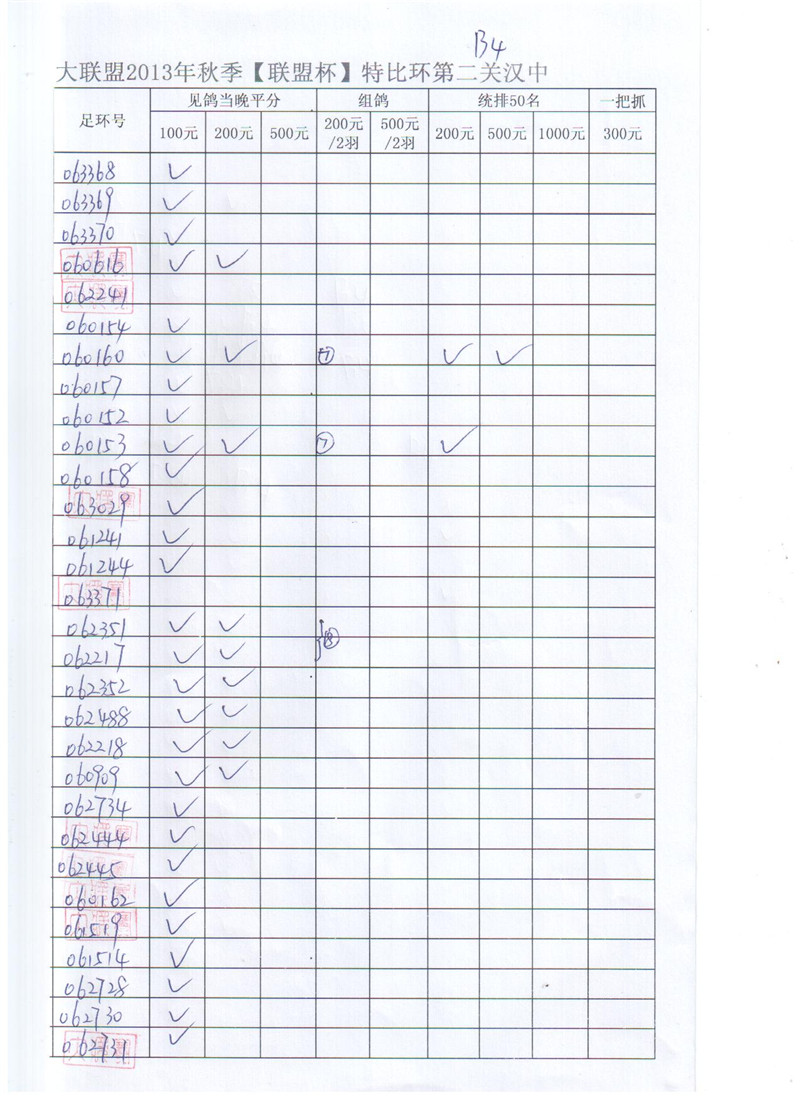 B4
大联盟2013年秋季【联盟杯】特比环第二关汉中
足环号 见鸽当晚平分 组鸽 统排50名 一把抓
100元 200元 500元 200元/2羽 500元/2羽 200元 500元 1000元 300元
063368 ✓
063369 ✓
063370 ✓
060616 ✓ ✓
062241
060154 ✓
060160 ✓ ✓ ✓ ✓
060157 ✓
060152 ✓
060153 ✓ ✓ ✓
060158 ✓
063029 ✓
061241 ✓
061244 ✓
063371
062351 ✓ ✓
062217 ✓ ✓
062352 ✓ ✓
062488 ✓ ✓
062218 ✓ ✓
060909 ✓ ✓
062734 ✓
062444 ✓
062445 ✓
060162 ✓
061519 ✓
061514 ✓
062728 ✓
062730 ✓
062731 ✓